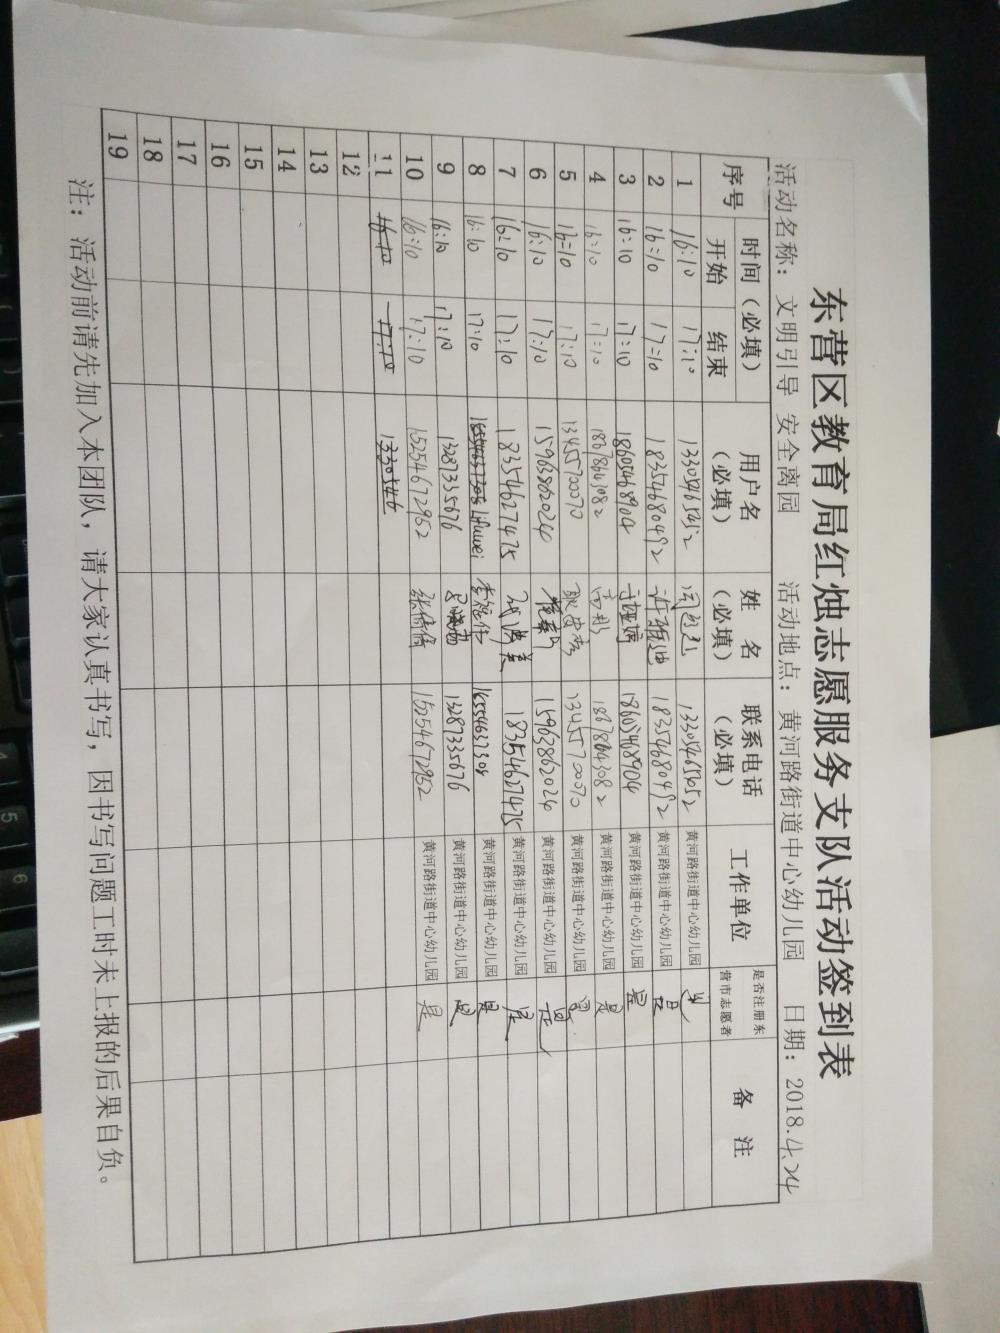 东营区教育局红烛志愿服务支队活动签到表
活动名称： 文明引导 安全离园 活动地点：黄河路街道中心幼儿园 日期：2018.4.24
序号 时间（必填） 用户名（必填） 姓 名（必填） 联系电话（必填） 工作单位 是否注册东营市志愿者 备 注
开始 结束
1 16:10 17:10 黄河路街道中心幼儿园 是
2 16:10 17:10 18354680492 许雅迪 18354680492 黄河路街道中心幼儿园 是
3 16:10 17:10 18605468904 18605468904 黄河路街道中心幼儿园 是
4 16:10 17:10 18678643082 高彤 18678643082 黄河路街道中心幼儿园 是
5 16:10 17:10 13455700070 13455700070 黄河路街道中心幼儿园 是
6 16:10 17:10 15963862024 15963862024 黄河路街道中心幼儿园 是
7 16:10 17:10 18354627475 18354627475 黄河路街道中心幼儿园 是
8 16:10 17:10 lifuwei 李福伟 15554637308 黄河路街道中心幼儿园 是
9 16:10 17:10 13287335676 13287335676 黄河路街道中心幼儿园 是
10 16:10 17:10 15254672952 张倩倩 15254672952 黄河路街道中心幼儿园 是
11 16:10 17:10 1330546
12
13
14
15
16
17
18
19
注：活动前请先加入本团队，请大家认真书写，因书写问题工时未上报的后果自负。